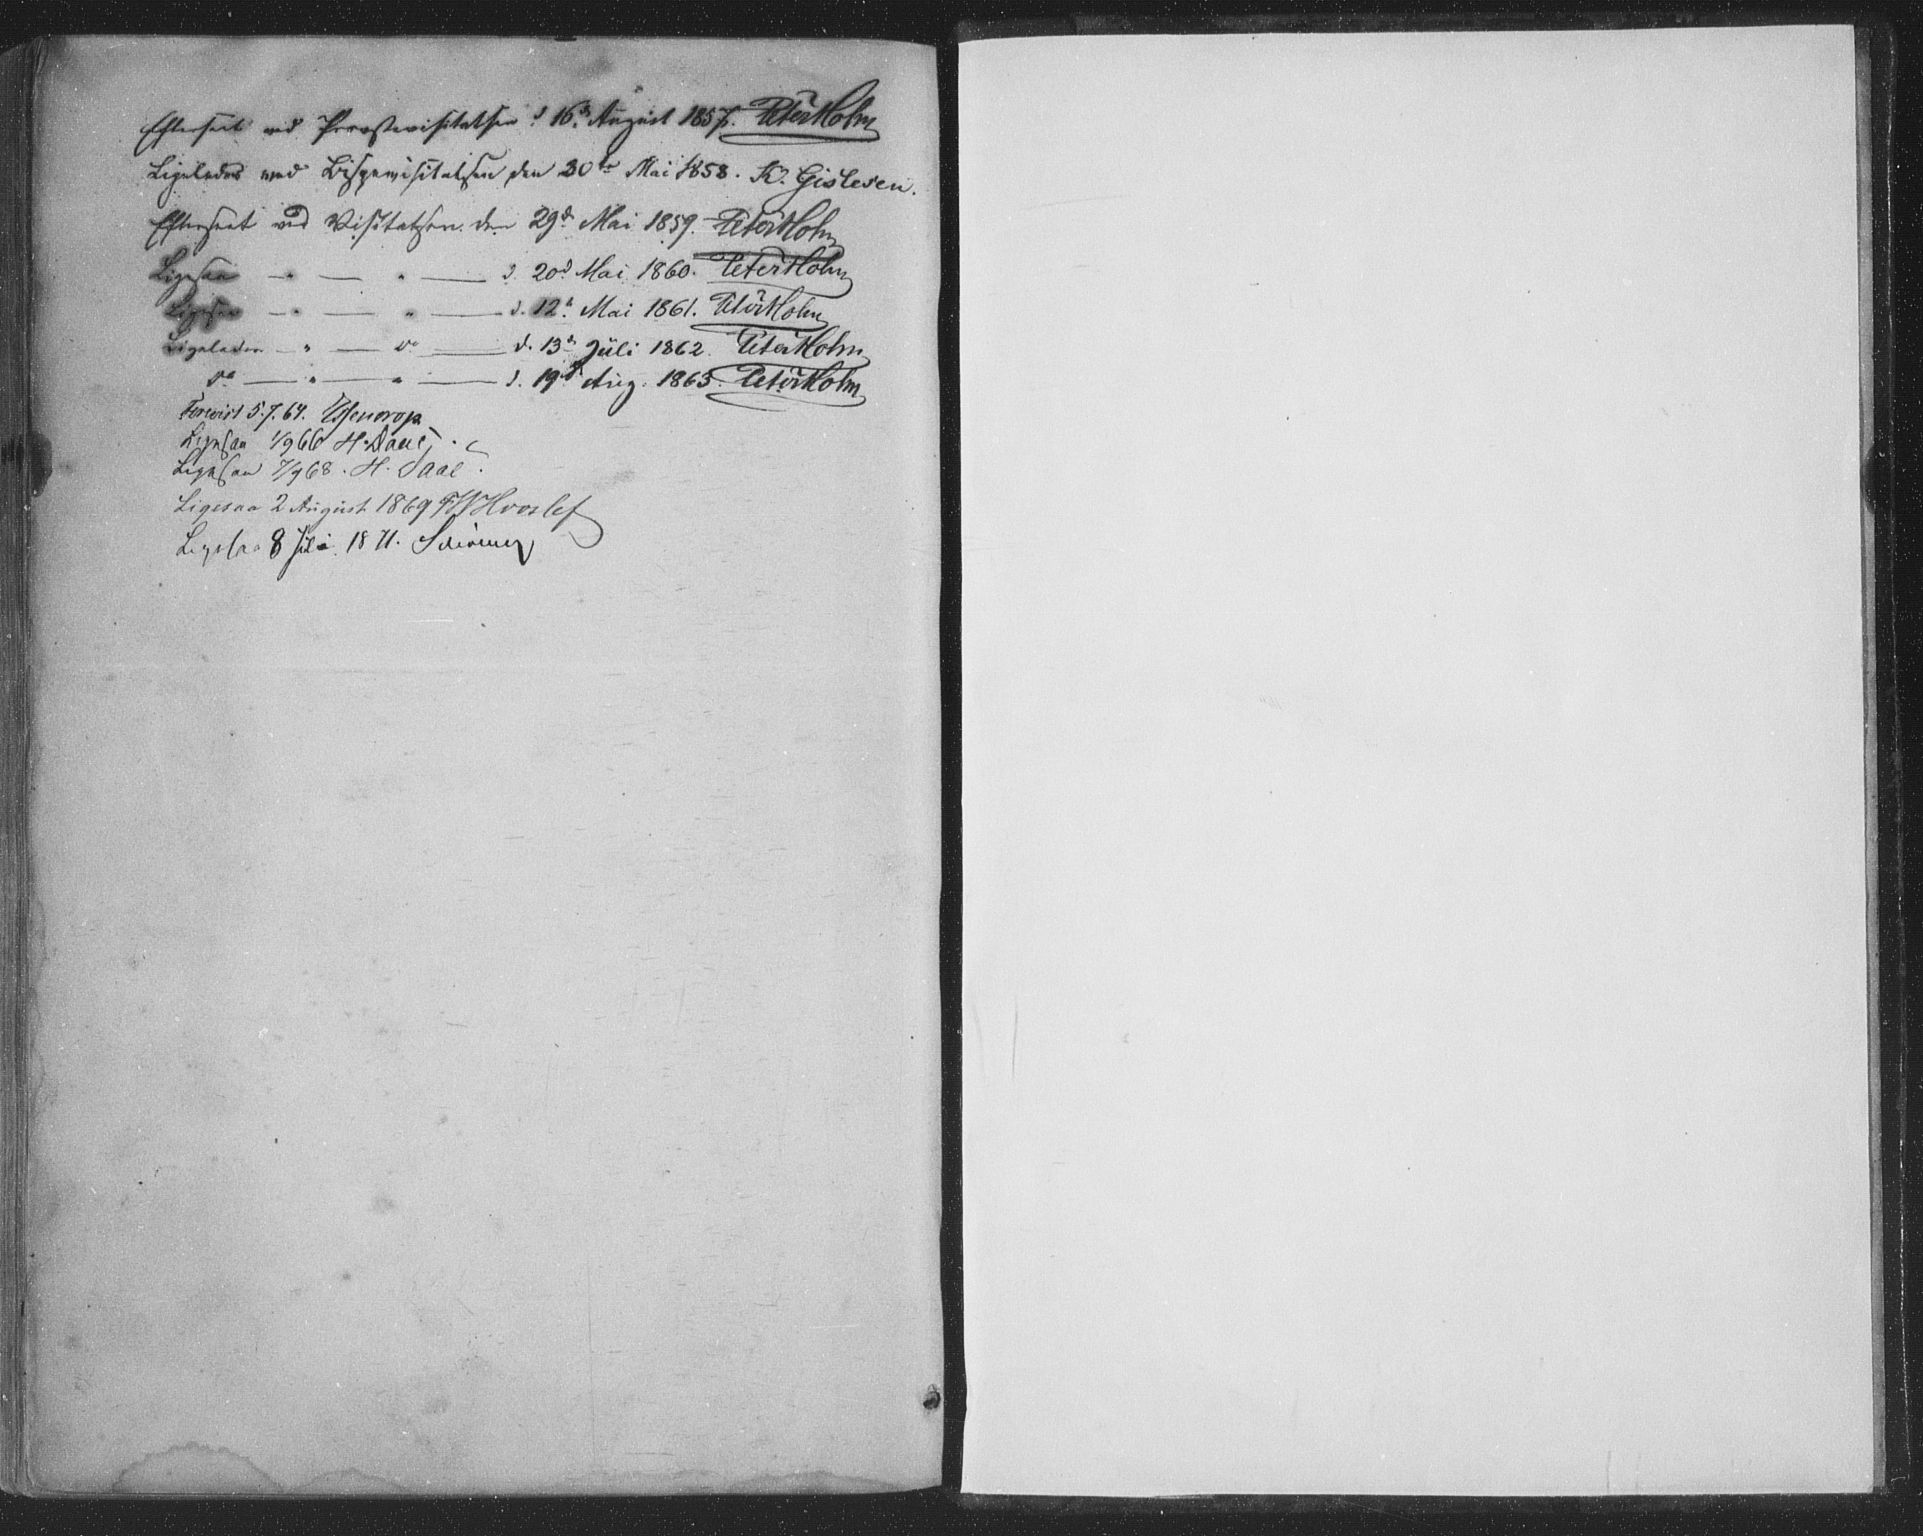 Efterseet ved Provstevisitatsen d 16d August 1857. Peter Holm
Ligeledes ved Bispevisitatsen den 30te Mai 1858. K. Gislesen.
Efterseet ved Visitatsen den 29d Mai 1859. Peter Holm
Ligesaa — " — " — d. 20d Mai 1860. Peter Holm
Ligesaa — " — " — d. 12d Mai 1861. Peter Holm
Ligeledes — " — do — d. 13d Juli 1862. Peter Holm
do — " — " — d. 19d Aug. 1863. Peter Holm
Forevist 5.7.64.
Ligesaa 1/9 66 H. Daae.
Ligesaa 7/9 68. H. Daae.
Ligesaa 2 August 1869 FWHvoslef
Ligesaa 8 Juli 1871.